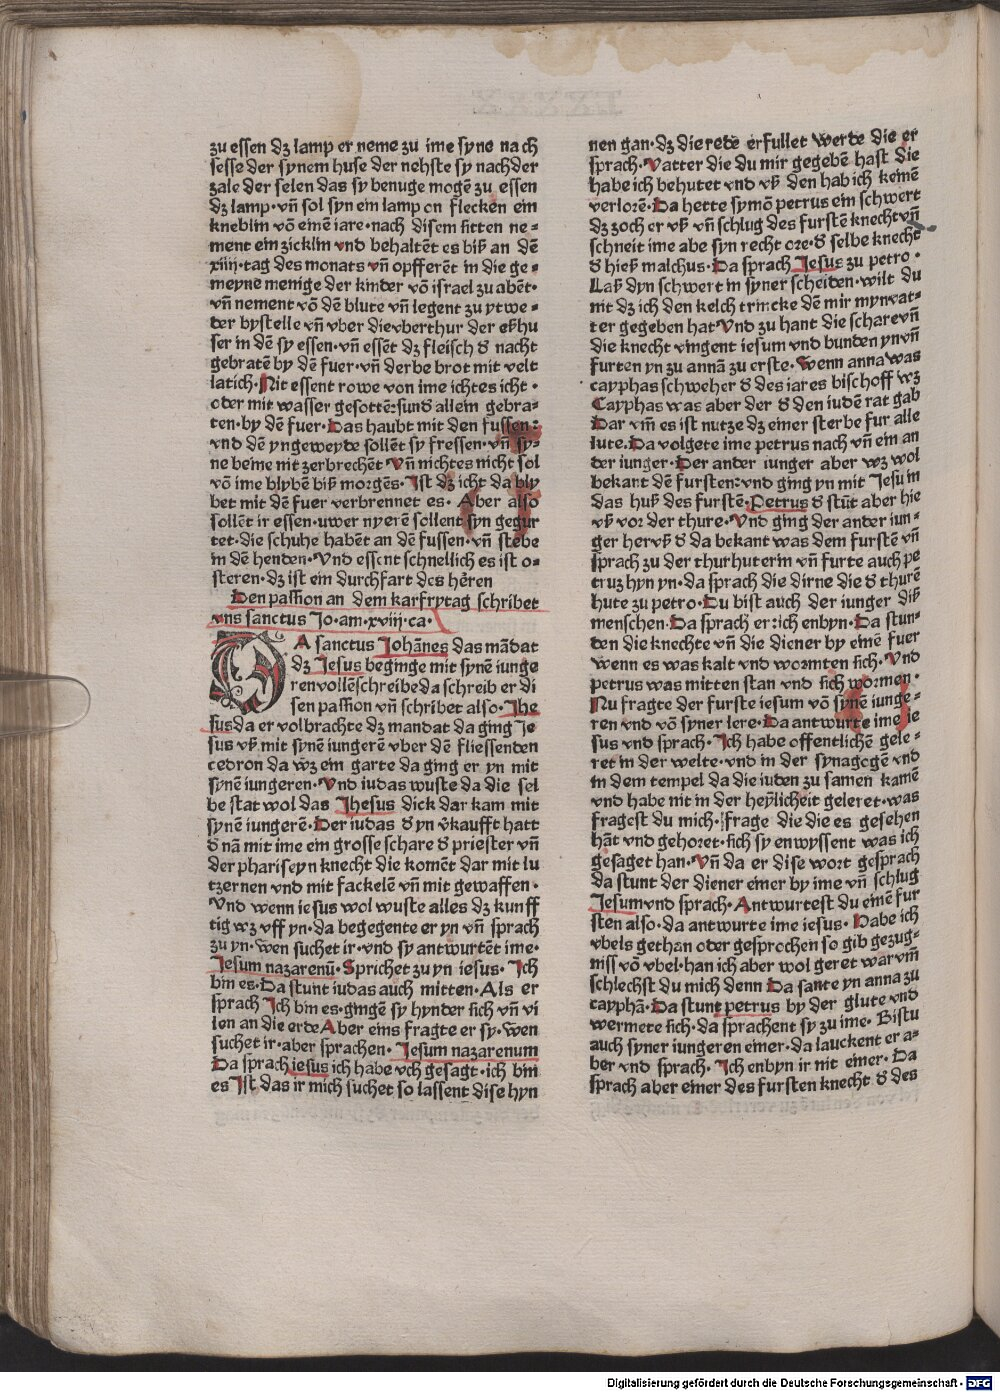 zu essen dʒ lamp er neme zu ime syne nach
sesse der synem huse der nehste sy nach der
zale der selen das sy benuge mogē zu essen
dʒ lamp· vn̄ sol syn ein lamp on flecken ein
kneblin vō einē iare· nach disem sitten ne⸗
ment ein zicklin vnd behaltēt es biß an dē
xiiij· tag des monats vn̄ opfferēt in die ge⸗
meyne menige der kinder vō israel zu abēt·
vn̄ nement vō dē blute vn̄ legent zu ytwe⸗
der bystelle vn̄ vber die vberthur der eßhu
ser in dē sy essen· vn̄ essēt dʒ fleisch d̕ nacht
gebratē by dē fuer· vn̄ derbe brot mit velt
latich· Nit essent rowe von ime ichtes icht·
oder mit wasser gesottē: sund̕ allein gebra⸗
ten· by dē fuer· Das haubt mit den fussen:
vnd dē yngeweyde sollēt sy fressen· vn̄ sy⸗
ne beine nit zerbrechēt Vn̄ nichtes nicht sol
vō ime blybē biß morgēs· Ist dʒ icht da bly
bet mit dē fuer verbrennet es· Aber also
sollēt ir essen· uwer nyerē sollent syn gegur
tet· die schuhe habēt an dē fussen· vn̄ stebe
in dē henden· Vnd essent schnellich es ist o⸗
steren· dʒ ist ein durchfart des hēren
Den passion an dem karfrytag schribet
vns sanctus Jo·am·xviij·ca·
DA sanctus Johānes das mādat
dʒ Jesus beginge mit synē iunge
ren volleschreibe da schreib er di
sen passion vn̄ schribet also· Jhe
sus da er volbrachte dʒ mandat da ging Je
sus vß mit synē iungerē vber dē fliessenden
cedron da wʒ ein garte da ging er yn mit
synē iungeren· Vnd iudas wuste da die sel
be stat wol das Jhesus dick dar kam mit
synē iungerē· Der iudas d̕ yn v̕kaufft hatt
d̕ nā mit ime ein grosse schare d̕ priester vn̄
der phariseyn knecht die komēt dar mit lu
tzernen vnd mit fackelē vn̄ mit gewaffen·
Vnd wenn iesus wol wuste alles dʒ kunff
tig wʒ vff yn· da begegente er yn vn̄ sprach
zu yn· wen suchet ir· vnd sy antwurtēt ime·
Jesum nazarenū· Sprichet zu yn iesus· Ich
bin es· Da stunt iudas auch mitten· Als er
sprach Ich bin es· gingē sy hynder sich vn̄ vi
len an die erde Aber eins fragte er sy· wen
suchet ir· aber sprachen· Jesum nazarenum
Da sprach iesus ich habe vch gesagt· ich bin
es Ist das ir mich suchet so lassent dise hyn
nen gan· dʒ die rede erfullet werde die er
sprach· Vatter die du mir gegebē hast die
habe ich behutet vnd vß den hab ich keinē
verlorē· Da hette symō petrus ein schwert
dʒ zoch er vß vn̄ schlug des furstē knecht vn̄
schneit ime abe syn recht ore· d̕ selbe knecht
d̕ hieß malchus· Da sprach Jesus zu petro·
Laß dyn schwert in syner scheiden· wilt du
nit dʒ ich den kelch trincke dē mir myn vat⸗
ter gegeben hat Vnd zu hant die schare vn̄
die knecht vingent iesum vnd bunden yn vn̄
furten yn zu annā zu erste· Wenn anna was
cayphas schweher d̕ des iares bischoff wʒ
Cayphas was aber der d̕ den iudē rat gab
Dar vm̄ es ist nutze dʒ einer sterbe fur alle
lute· Da volgete ime petrus nach vn̄ ein an
der iunger· Der ander iunger aber wʒ wol
bekant dē fursten: vnd ging yn mit Jesu in
das huß des furstē· Petrus d̕ stūt aber hie
vß vor der thure· Vnd ging der ander iun⸗
ger her vß d̕ da bekant was dem furstē vn̄
sprach zu der thurhuterin vn̄ furte auch pe
truz hyn yn· da sprach die dirne die d̕ thurē
hute zu petro· Du bist auch der iunger diß
menschen· Da sprach er: ich enbyn· Da stun⸗
den die knechte vn̄ die diener by einē fuer
wenn es was kalt vnd wormten sich· Vnd
petrus was mitten stan vnd sich wormen·
Nu fragte der furste iesum vō synē iunge⸗
ren vnd vō syner lere· Da antwurte ime ie
sus vnd sprach· Ich habe offentlichē gele⸗
ret in der welte· vnd in der synagogē vnd
in dem tempel da die iuden zu samen kamē
vnd habe nit in der heylicheit geleret· was
fragest du mich· frage die die es gesehen
hāt vnd gehoret· sich sy enwyssent was ich
gesaget han· Vn̄ da er dise wort gesprach
da stunt der diener einer by ime vn̄ schlug
Jesum vnd sprach· Antwurtest du einē fur
sten also· da antwurte ime iesus· Habe ich
vbels gethan oder gesprochen so gib gezug⸗
niss vō vbel· han ich aber wol geret warvm̄
schlechst du mich denn Da sante yn anna zu
cayphā· Da stunt petrus by der glute vnd
wermete sich· da sprachent sy zu ime· Bistu
auch syner iungeren einer· da lauckent er a⸗
ber vnd sprach· Ich enbyn ir nit einer· Da
sprach aber einer des fursten knecht d̕ des
Digitalisierung gefördert durch die Deutsche Forschungsgemeinschaft - DFG